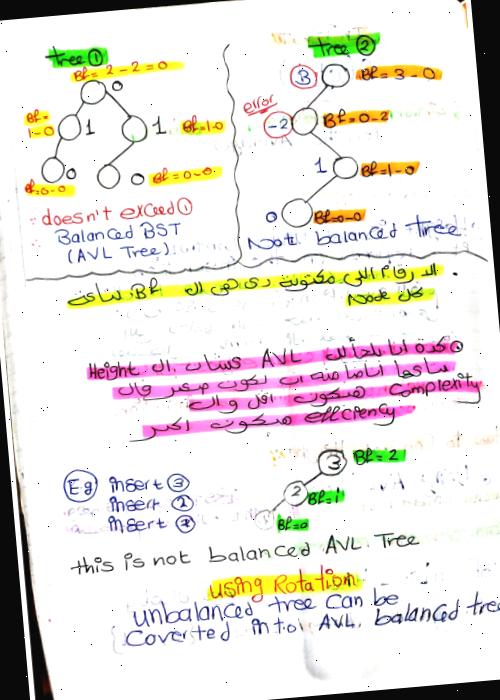 tree ①
Bf = 2 - 2 = 0
0
Bf=
1-0
1
1
Bf=1-0
0
0
Bf=0-0
Bf=0-0
doesn't exceed ①
Balanced BST
(AVL Tree)
tree ②
3
Bf = 3 - 0
error
-2
Bf=0-2
1
Bf=1-0
0
Bf=0-0
Not balanced tree
الارقام اللي مكتوبة دي هي ال Bf بتاعت
كل Node
كدة انا بلجأ لل AVL عشان ال Height
بتاعها
تكون صغير
هيكون اقل وال Complexity
هيكون اكبر efficiency
E.g
insert ③
insert ②
insert
3
Bf = 2
2
Bf=1
1
Bf=0
this is not balanced AVL Tree
using Rotation
unbalanced tree can be
Coverted into AVL balanced tree